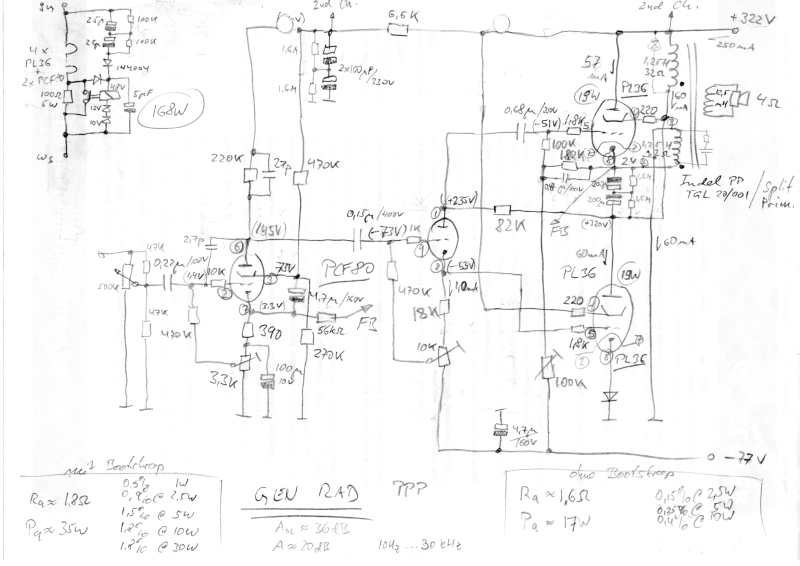 2nd Ch.
2nd Ch.
+322V
250mA
6,6K
4x
PL36
+
2x PCF80
100Ω
5W
100K
100K
1N4004
48V
12V
10V
5µF
168W
1,6M
1,6M
2x100µF/
350V
57
mA
19W
PL36
220
1,25H
32Ω
160
mA
4Ω
0,68µ/200V
(-51V)
1,8K
100K
180K
2V
200µ
200µ
(+320V)
1,5M
1,5M
Indel PP / Split
TGL 20/001 Prim.
220K
27p
470K
0,15µ/400V
(-73V)
1K
(+235V)
82K
FB
60mA
60mA
(145V)
PCF80
75V
2,7p
47K
0,22µ/100V
500K
10K
47K
470K
(3.3V)
4,7µ/160V
390
56kΩ
FB
270K
3,3K
100µ
10V
470K
(-53V)
1,0mA
18K
10K
PL36
19W
220
1,8K
PL36
100K
4,7µ
160V
-77V
mit Bootstrap
Ra ≈ 1,8Ω
Pa ≈ 35W
0.5% 1W
0,9% @ 2,5W
1,5% @ 5W
1.8% @ 10W
1.8% @ 30W
GEN RAD PPP
A ≈ 36dB
A ≈ 20dB
10Hz ... 30kHz
ohne Bootstrap
Ra ≈ 1,6Ω
Pa ≈ 17W
0,15% @ 2,5W
0,25% @ 5W
0,4% @ 10W